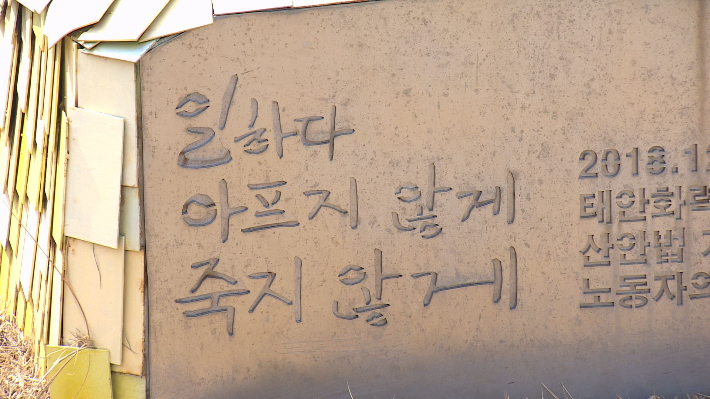 일하다
아프지 않게
죽지 않게
2018.12
태안화력
산안법
노동자의